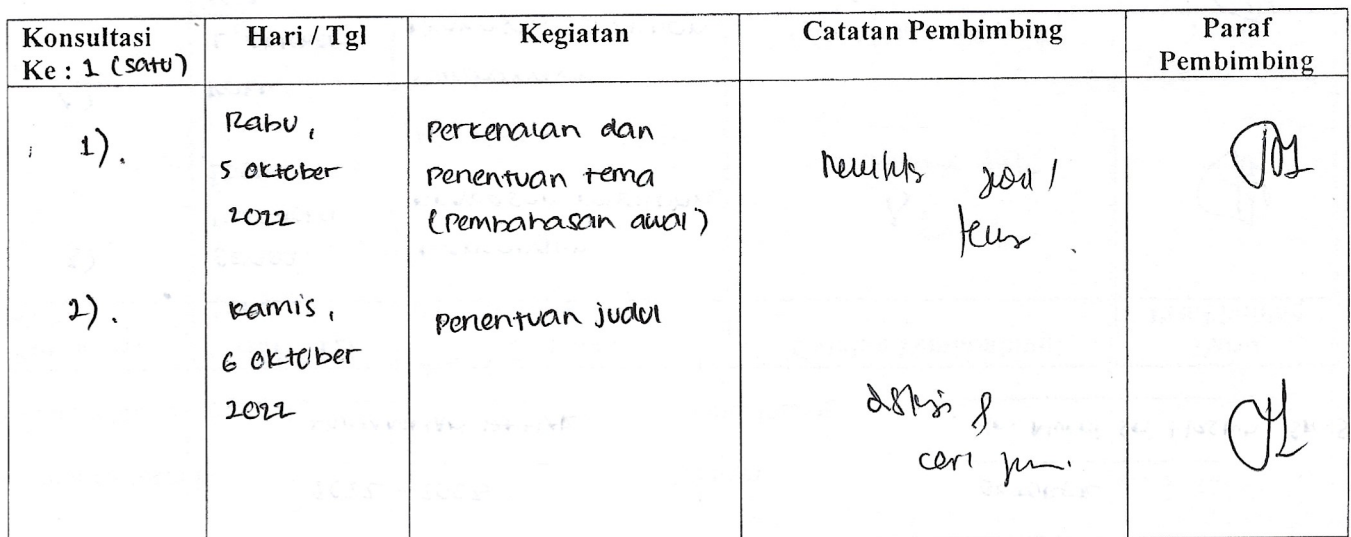 Konsultasi Ke : 1 (satu)
Hari / Tgl
Kegiatan
Catatan Pembimbing
Paraf Pembimbing
1).
Rabu,
5 oktober
2022
Perkenalan dan
Penentuan tema
(Pembahasan awal)
2).
Kamis,
6 oktober
2022
Penentuan judul
cari